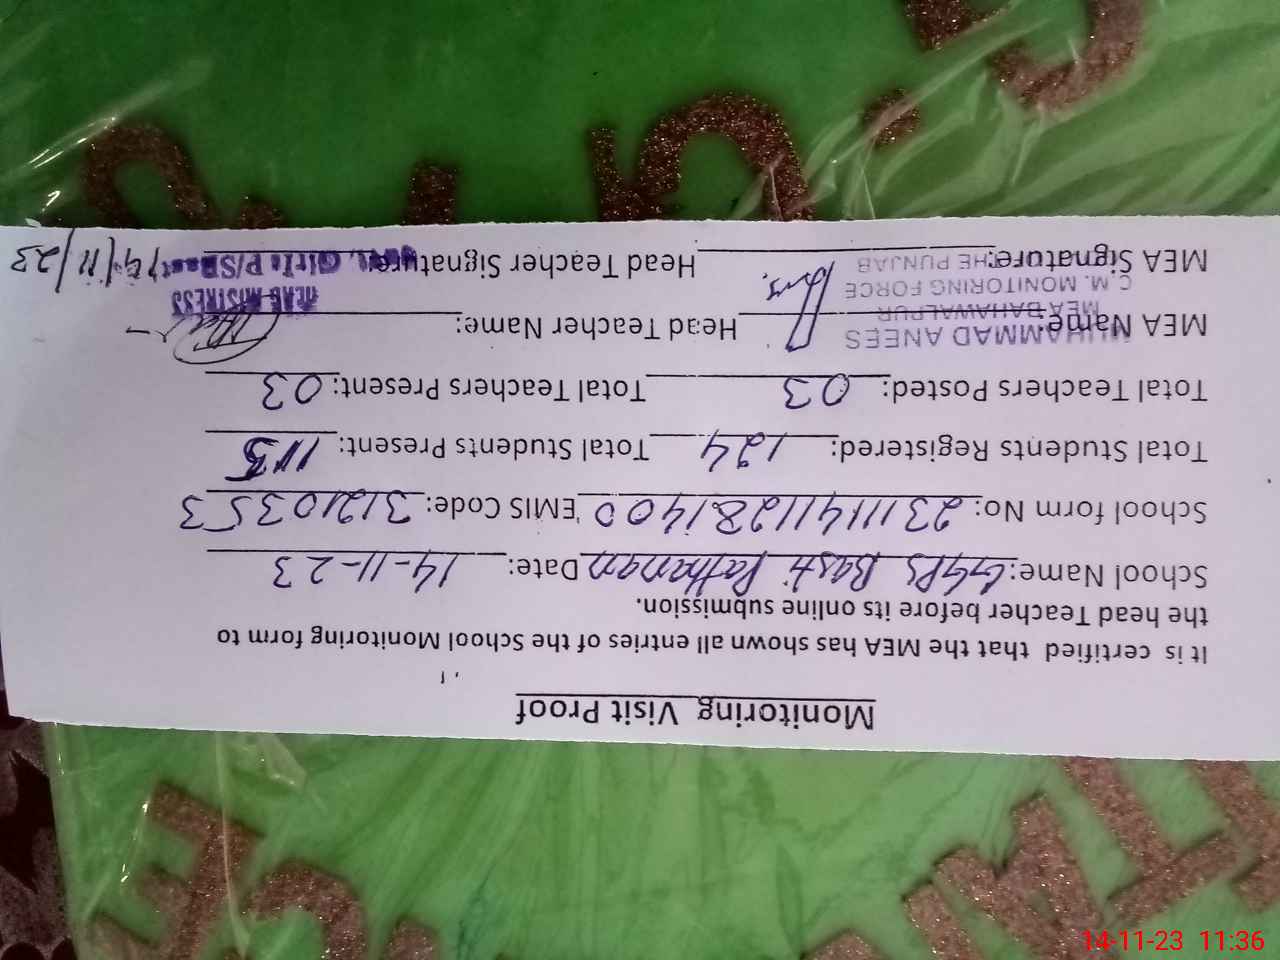 Monitoring Visit Proof
It is certified that the MEA has shown all entries of the School Monitoring form to
the head Teacher before its online submission.
School Name: GGPS Basti Pathanan Date: 14-11-23
School form No: 23111411281400 EMIS Code: 31210353
Total Students Registered: 124 Total Students Present: 115
Total Teachers Posted: 03 Total Teachers Present: 03
MEA Name: Head Teacher Name:
MUHAMMAD ANEES
MEA BAHAWALPUR
C.M. MONITORING FORCE
THE PUNJAB
HEAD MISTRESS
MEA Signature: Head Teacher Signature:
Girls P/S 14/11/23
14-11-23 11:36